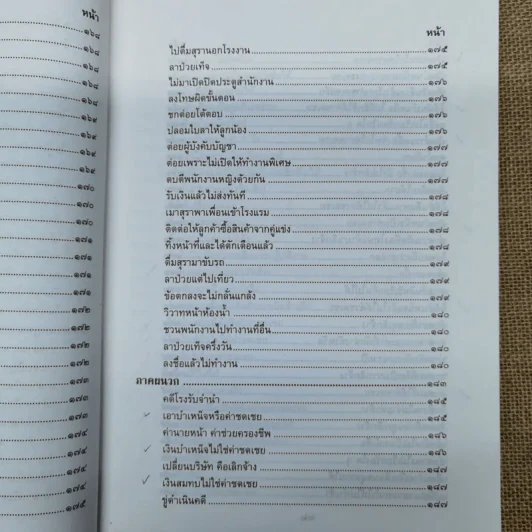 หน้า
๑๖๘
๑๖๘
๑๖๘
๑๖๘
๑๖๙
๑๖๙
๑๖๙
๑๖๙
๑๗๐
๑๗๐
๑๗๐
๑๗๑
๑๗๑
๑๗๑
๑๗๑
๑๗๒
๑๗๒
๑๗๒
๑๗๒
๑๗๓
๑๗๓
๑๗๓
๑๗๔
๑๗๔
๑๗๔
๑๗๔
๑๗๕
หน้า
ไปดื่มสุรานอกโรงงาน ๑๗๕
ลาป่วยเท็จ ๑๗๕
ไม่มาเปิดปิดประตูสำนักงาน ๑๗๖
ลงโทษผิดขั้นตอน ๑๗๖
ชกต่อยโต้ตอบ ๑๗๖
ปลอมใบลาให้ลูกน้อง ๑๗๖
ต่อยผู้บังคับบัญชา ๑๗๗
ต่อยเพราะไม่เปิดให้ทำงานพิเศษ ๑๗๗
ตบตีพนักงานหญิงด้วยกัน ๑๗๗
รับเงินแล้วไม่ส่งทันที ๑๗๘
เมาสุราพาเพื่อนเข้าโรงแรม ๑๗๘
ติดต่อให้ลูกค้าซื้อสินค้าจากคู่แข่ง ๑๗๘
ทิ้งหน้าที่และได้ตักเตือนแล้ว ๑๗๘
ดื่มสุรามาขับรถ ๑๗๙
ลาป่วยแต่ไปเที่ยว ๑๗๙
ข้อตกลงจะไม่กลั่นแกล้ง ๑๗๙
วิวาทหน้าห้องน้ำ ๑๘๐
ชวนพนักงานไปทำงานที่อื่น ๑๘๐
ลาป่วยเท็จครึ่งวัน ๑๘๐
ลงชื่อแล้วไม่ทำงาน ๑๘๐
ภาคผนวก ๑๘๓
คดีโรงรับจำนำ ๑๘๕
เอาบำเหน็จหรือค่าชดเชย ๑๘๕
ค่านายหน้า ค่าช่วยครองชีพ ๑๘๖
เงินบำเหน็จไม่ใช่ค่าชดเชย ๑๘๖
เปลี่ยนบริษัท คือเลิกจ้าง ๑๘๗
เงินสมทบไม่ใช่ค่าชดเชย ๑๘๗
ขู่ดำเนินคดี ๑๘๗